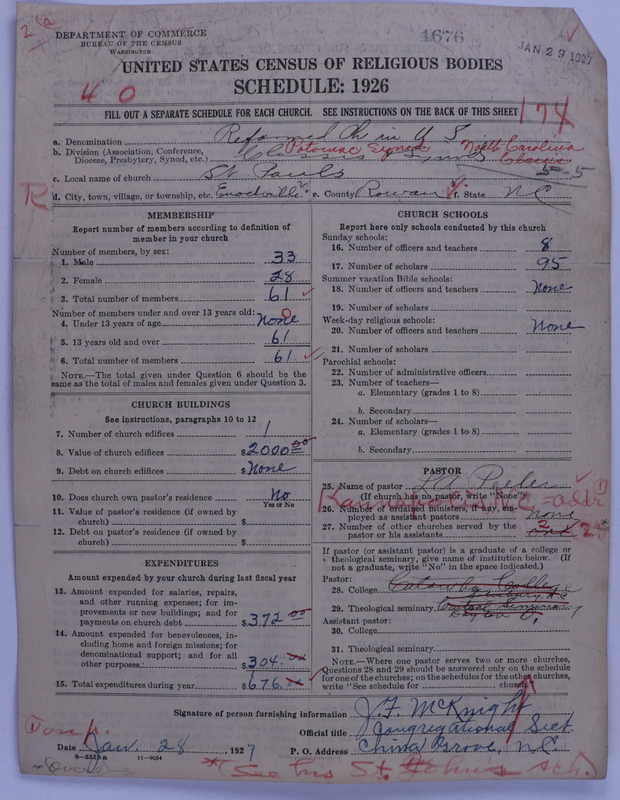 2 a
DEPARTMENT OF COMMERCE
BUREAU OF THE CENSUS
WASHINGTON
1676
JAN 29 1927
UNITED STATES CENSUS OF RELIGIOUS BODIES
SCHEDULE: 1926
4 0
FILL OUT A SEPARATE SCHEDULE FOR EACH CHURCH. SEE INSTRUCTIONS ON THE BACK OF THIS SHEET
174
a. Denomination Reformed Ch in U S
b. Division (Association, Conference, Diocese, Presbytery, Synod, etc.) Classis Synod Potomac Synod North Carolina Classis
c. Local name of church St Pauls
5-5
R
d. City, town, village, or township, etc. Enochville e. County Rowan f. State NC
MEMBERSHIP
Report number of members according to definition of member in your church
Number of members, by sex:
1. Male 33
2. Female 28
3. Total number of members 61
Number of members under and over 13 years old:
4. Under 13 years of age none 0
5. 13 years old and over 61
6. Total number of members 61
NOTE.—The total given under Question 6 should be the same as the total of males and females given under Question 3.
CHURCH BUILDINGS
See instructions, paragraphs 10 to 12
7. Number of church edifices 1
8. Value of church edifices $2000.00
9. Debt on church edifices $None
10. Does church own pastor's residence No
Yes or No
11. Value of pastor's residence (if owned by church) $
12. Debt on pastor's residence (if owned by church) $
EXPENDITURES
Amount expended by your church during last fiscal year
13. Amount expended for salaries, repairs, and other running expenses; for improvements or new buildings; and for payments on church debt $372.00
14. Amount expended for benevolences, including home and foreign missions; for denominational support; and for all other purposes $304.xx
15. Total expenditures during year $676.xx
CHURCH SCHOOLS
Report here only schools conducted by this church
Sunday schools:
16. Number of officers and teachers 8
17. Number of scholars 95
Summer vacation Bible schools:
18. Number of officers and teachers None
19. Number of scholars
Week-day religious schools:
20. Number of officers and teachers None
21. Number of scholars
Parochial schools:
22. Number of administrative officers
23. Number of teachers—
a. Elementary (grades 1 to 8)
b. Secondary
24. Number of scholars—
a. Elementary (grades 1 to 8)
b. Secondary
PASTOR
25. Name of pastor
(If church has no pastor, write "None")
Kannapolis N C - addr
26. Number of ordained ministers, if any, employed as assistant pastors none
27. Number of other churches served by the pastor or his assistants 2
If pastor (or assistant pastor) is a graduate of a college or theological seminary, give name of institution below. (If not a graduate, write "No" in the space indicated.)
Pastor:
28. College Catawba College
Salisbury N C
29. Theological seminary Central Seminary
Dayton O.
Assistant pastor:
30. College
31. Theological seminary
NOTE.—Where one pastor serves two or more churches, Questions 28 and 29 should be answered only on the schedule for one of the churches; on the schedules for the other churches, write "See schedule for church"
Signature of person furnishing information J. F. McKnight
Official title Congregational Sect
Date Jan. 28, 1927 P. O. Address China Grove, N.C.
8—5510a 11—9034
* (See his St. John's sch.)